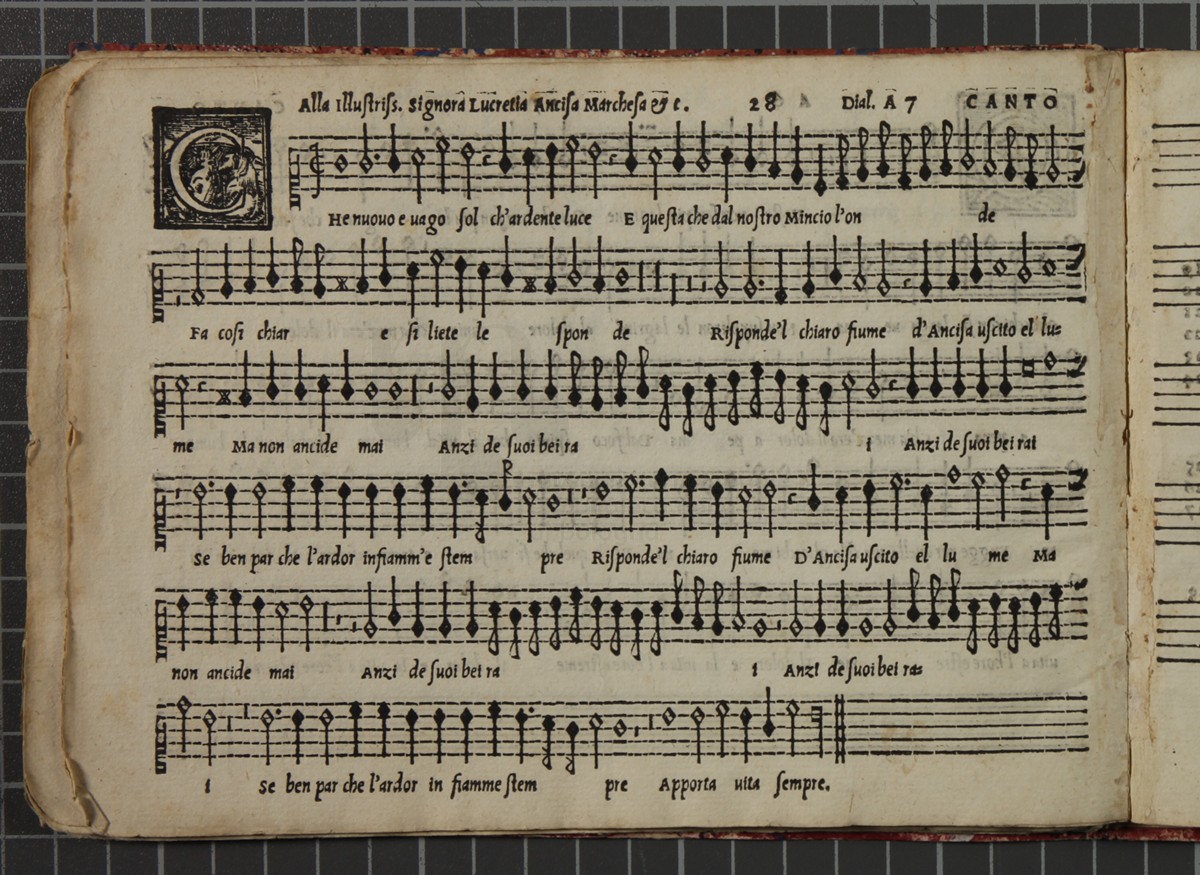 Alla Illustriss. Signora Lucretia Ancisa Marchesa & c. 28 Dial. A 7 CANTO
CHe nuouo e uago sol ch'ardente luce E questa che dal nostro Mincio l'on de
Fa cosi chiar e si liete le spon de Risponde'l chiaro fiume d'Ancisa uscito el lu=
me Ma non ancide mai Anzi de suoi bei ra i Anzi de suoi bei rai
Se ben par che l'ardor infiamm'e stem pre Risponde'l chiaro fiume D'Ancisa uscito el lu me Ma
non ancide mai Anzi de suoi bei ra i Anzi de suoi bei ra=
i Se ben par che l'ardor in fiamme stem pre Apporta uita sempre.